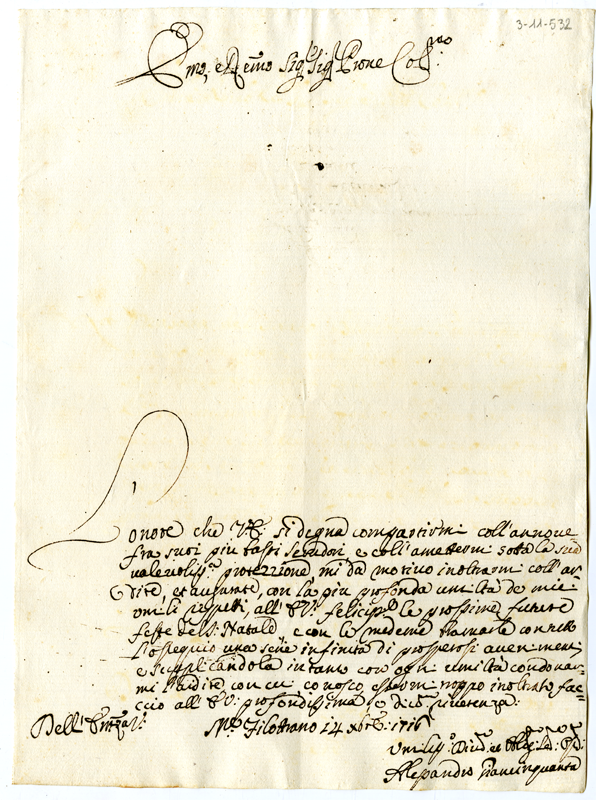 3-11-532
Emo, e Remo Sigr Sigr Prone Colmo
L'onore che V.E. si degna compartirmi coll'annove-
frà suoi più bassi servidori, e coll'amettermi sotto la sua
valevoliss.a protezzione mi dà motivo inoltrarmi coll'ar-
dire, et augurare, con la più profonda umiltà de miei
umili rispetti, all'E.V. le prossime future
feste del S. Natale, e con le medeme
l'ossequio una serie infinita di prosperosi avenimenti
e supplicandola intanto con ogni umiltà condonar-
mi l'ardire, con cui conosco essermi troppo inoltrato fac-
cio all'E.V. profondissima e riverenza:
Dell'Emza V. Filottrano 14 Xbre: 1716
Umiliss.o Divo. et Oblig.
Alessandro Giancinquanta